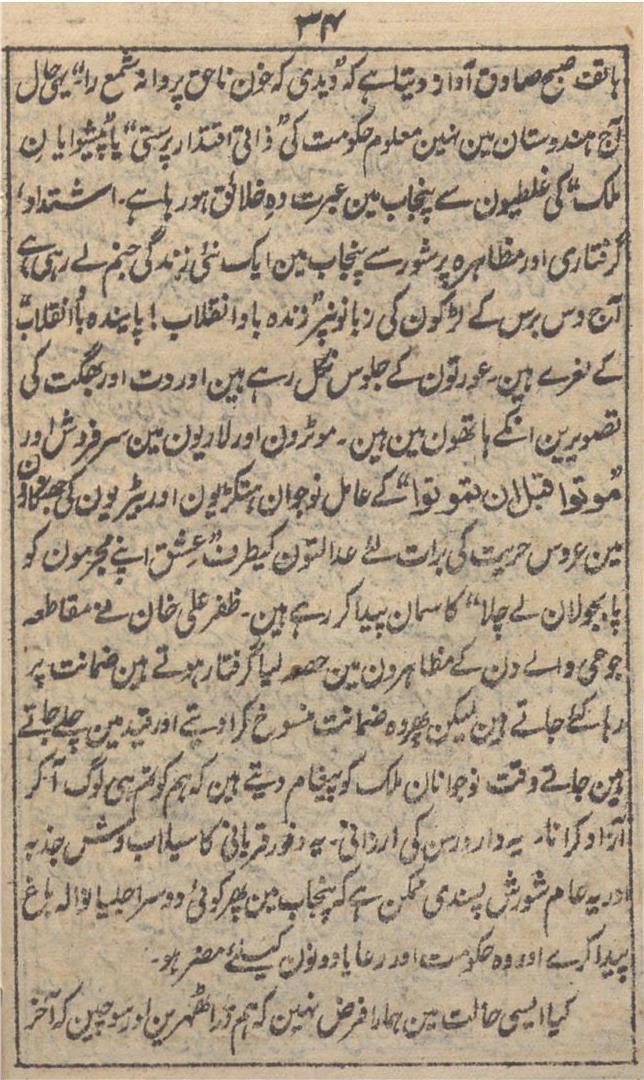 ۳۴
ہاتف صبح صادق آواز دیتا ہے کہ "دیدی کہ خون ناحق پروانہ شمع را" یہی حال
آج ہندوستان مین نہین معلوم حکومت کی "ذاتی اقتدار پرستی" یا "پیشوایان
ملک" کی غلطیون سے پنجاب مین عبرت دہِ خلائق ہو رہا ہے۔ اشتداد،
گرفتاری اور مظاہرہ پرشور سے پنجاب مین ایک نئی زندگی جنم لے رہی ہے
آج دس برس کے لڑکون کی زبانونپر "زندہ باد انقلاب! پایندہ باد انقلاب"
کے نعرے ہین۔ عورتون کے جلوس نکل رہے ہین اور دت اور بھگت کی
تصویرین انکے ہاتھون مین ہین۔ موٹرون اور لاریون مین سرفروش اور
"موتوا قبل ان تموتوا" کے عامل نوجوان ہتکڑیون اور بیڑیون کی جھنکارون
مین عروس حریت کی برات لئے عدالتون کیطرف "عشق اپنے مجرمون کو
پابجولان لے چلا" کا سمان پیدا کر رہے ہین۔ ظفر علی خان نے مقاطعہ
جوعی والے دن کے مظاہرون مین حصہ لیا گرفتار ہوتے ہین ضمانت پر
رہا کئے جاتے ہین لیکن پھر وہ ضمانت منسوخ کرا دیتے اور قید مین چلے جاتے
ہین جاتے وقت نوجوانان ملک کو پیغام دیتے ہین کہ ہم کو تم ہی لوگ آ کر
آزاد کرانا۔ یہ دار و رسن کی ارزانی۔ یہ وفور قربانی کا سیلاب وش جذبہ
اور یہ عام شورش پسندی ممکن ہے کہ پنجاب مین پھر کوئی دوسرا جلیانوالہ باغ
پیدا کرے اور وہ حکومت اور رعایا دونون کیلئے مضر ہو۔
کیا ایسی حالت مین ہمارا فرض نہین کہ ہم ذرا ٹھہرین اور سوچین کہ آخر